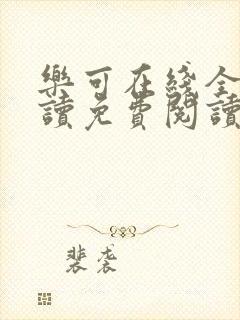 樂可在綫全
讀免費閱讀
裴袭